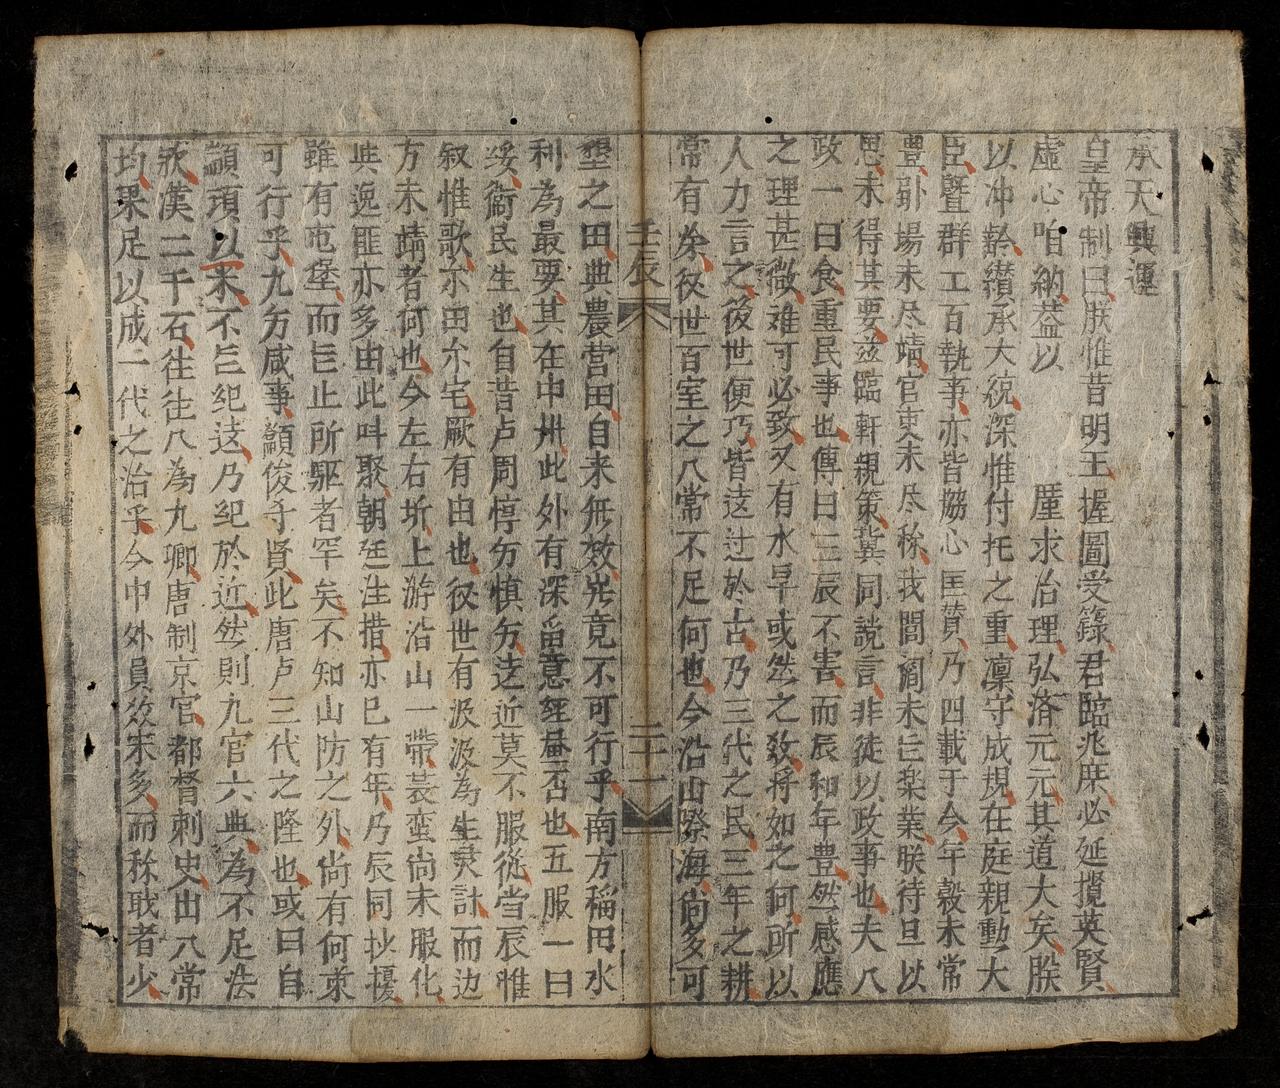 承天興運
皇帝制曰朕惟昔明王握圖受籙君臨兆庶必延攬英賢
虛心咱納葢以 厘求治理弘済元元其道大矣朕
以冲齡纘承大統深惟付托之重凜守成規在庭親勳大
臣暨群工百執事亦皆協心匡賛乃四載于今年穀未常
豊卧場未尽靖官吏未尽称我閭阎未㠯楽業朕待旦以
思未得其要兹臨軒親策冀同説言非徒以政事也夫八
政一曰食重民事也傳曰三辰不害而辰和年豊然感應
之理甚微难可必致又有水旱或然之数将如之何所以
人力言之後世便巧皆逺过於古乃三代之民三年之耕
常有余後世百室之入常不足何也今沿山際海尚多可
壬辰 二十一
墾之田典農营田自来無效岂竟不可行乎南方稲田水
利為最要其在中州此外有深畄意經画否也五服一曰
綏衞民生也自昔卢周惇方慎方逺近莫不服従当辰惟
叙惟歌尔田尔宅厥有由也後世有汲汲為生灵計而边
方未靖者何也今左右圻上游沿山一带芸蛮尚未服化
典逸匪亦多由此叫聚朝廷注措亦已有年乃辰同抄擾
雖有屯堡而㠯止所驱者罕矣不知山防之外尚有何策
可行乎九方咸事顓俊于賢此唐卢三代之隆也或曰自
顓頊以来不㠯纪逺乃纪於近然則九官六典為不足法
欤漢二千石往往入為九卿唐制京官都督刺史出入常
均果足以成一代之治乎今中外員数宋多而称戢者少